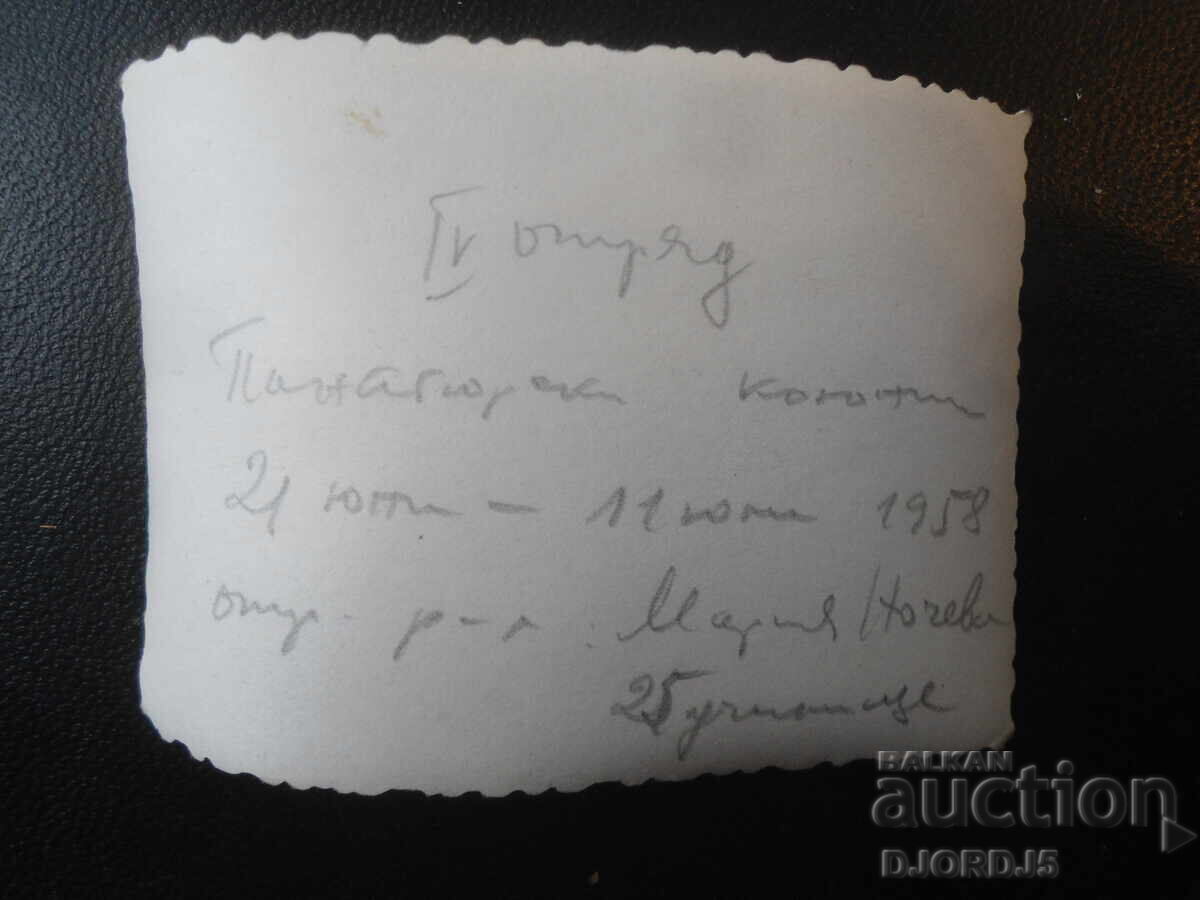 IV отряд
Панагюрски колонии
21 юни - 11 юли 1958
отр. р-л. Мария Ночева
25 училище
BALKAN
auction
DJORDJ5